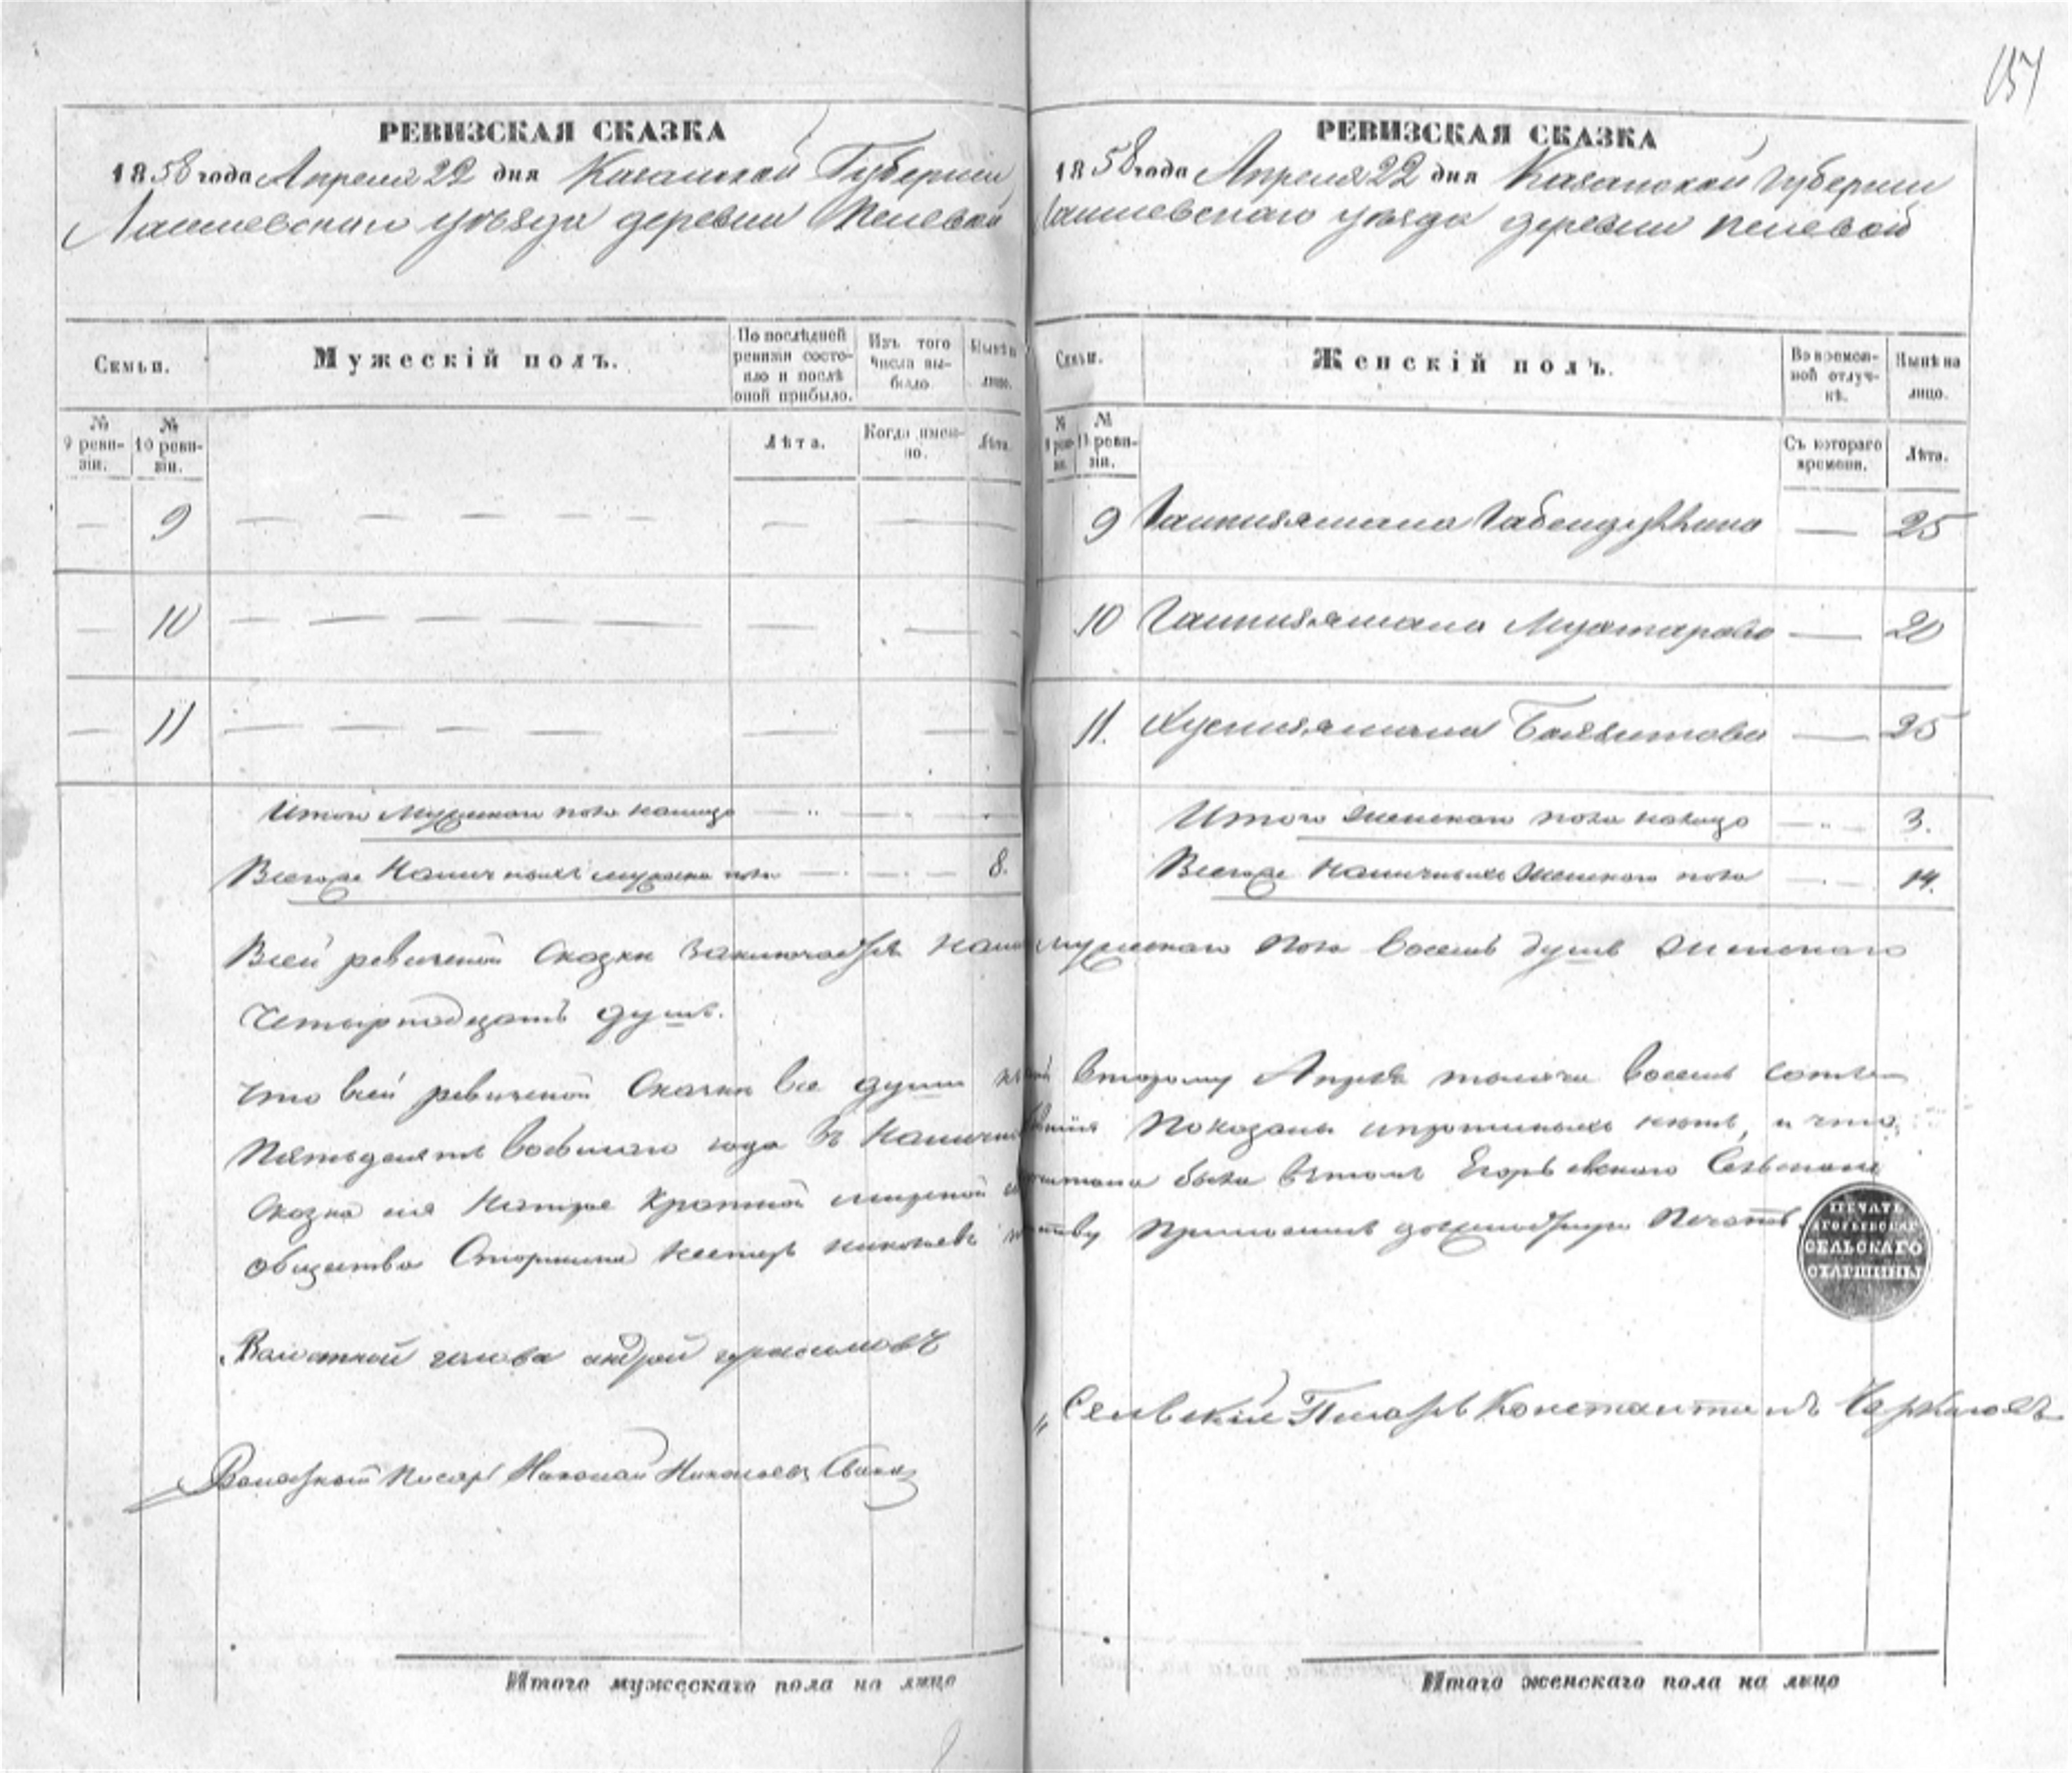 157
РЕВИЗСКАЯ СКАЗКА
1858 года Апреля 22 дня Казанской Губернии
Лаишевскаго уѣзда деревни Пелевой
Семьи.
Мужескій полъ.
По послѣдней ревизіи состояло и послѣ оной прибыло.
Изъ того числа выбыло
Нынѣ на лицо.
№ 9 ревизіи.
№ 10 ревизіи.
Лѣта.
Когда именно.
Лѣта.
— 9 — — — — — — — —
— 10 — — — — — — — —
— 11 — — — — — — —
Итого Мужескаго пола налицо
Всего же Наличныхъ мужеска пола 8.
РЕВИЗСКАЯ СКАЗКА
1858 года Апреля 22 дня Казанской Губернии
Лаишевскаго уѣзда деревни Пелевой
Семьи.
Женскій полъ.
Во временной отлучкѣ.
Нынѣ на лицо.
№ 9 ревизіи.
№ 10 ревизіи.
Съ котораго времени.
Лѣта.
9 — 25
10 Мухтарова — 20
11. — 25
Итого женскаго пола налицо 3.
Всего же Наличныхъ Женскаго пола 14.
Всей ревизской Сказки заключается мужескаго пола восемь душъ женскаго
четырнадцать душъ.
Что всей ревизской Сказки все души второму Апреля тысяча восемь сотъ
Пятьдесятъ восьмаго года въ Показаны и прописныхъ нетъ, и что
Сказка сия мирской была въ томъ Егорьевскаго Сельскаго
общества Старшина Нестеръ Николаевъ Печать.
ПЕЧАТЬ
ЕГОРЬЕВСКАГО
СЕЛЬСКАГО
СТАРШИНЫ
Волостной голова андрей герасимовъ
Сельскій Писарь Константинъ
Волостной Писарь Николай Николаевъ
Итого мужескаго пола на лицо
Итого женскаго пола на лицо